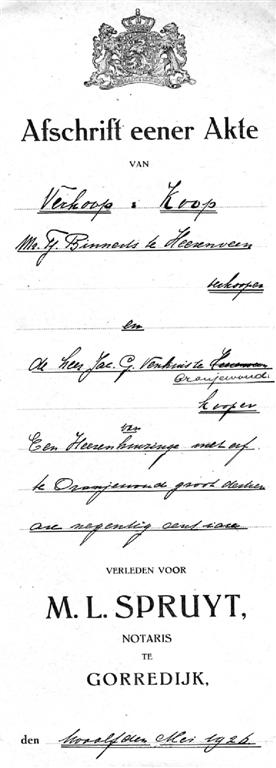 Afschrift eener Akte
VAN
Verkoop & Koop
Mr. Tj. Binnerts te Heerenveen
verkooper
en
de heer Jac. G. Venhuis te
Oranjewoud
kooper
van
Een Heerenhuizinge met erf
te Oranjewoud groot dertien
are negentig centiare
VERLEDEN VOOR
M. L. SPRUYT,
NOTARIS
TE
GORREDIJK,
den twaalfden Mei 1926